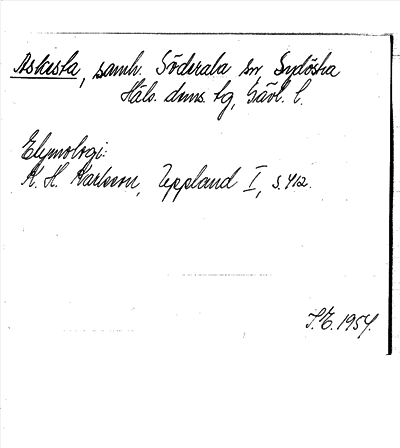 Askesta, samh. Söderala sn, Sydöstra
Häls. doms. tg, Gävl. l.
Etymologi:
K. H. Karlsson, Uppland I, s. 412.
S.E. 1954.